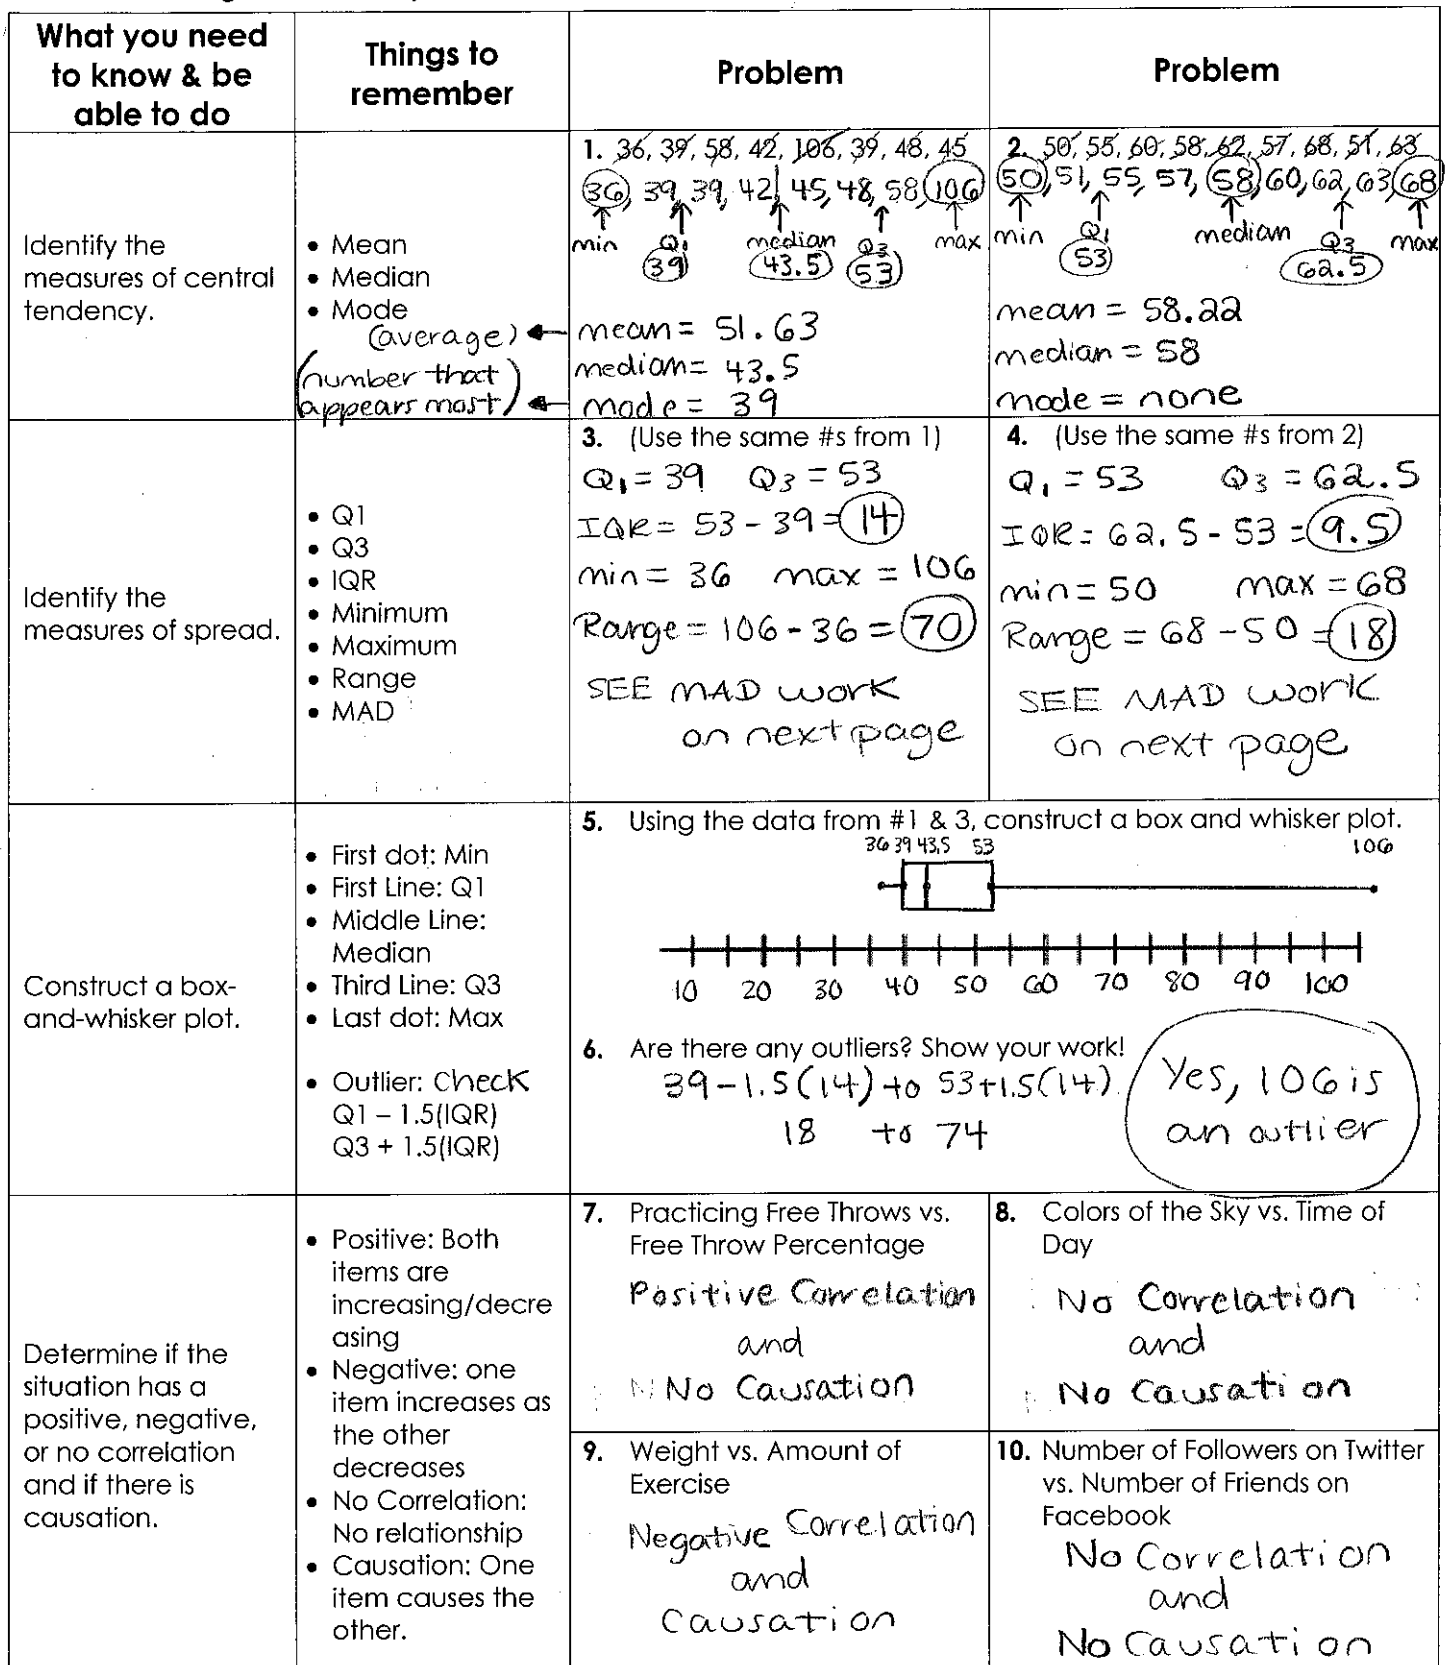 What you need
to know & be
able to do
Things to
remember
Problem
Problem
Identify the
measures of central
tendency.
• Mean
• Median
• Mode
(average)
(number that
appears most)
1. 36, 39, 58, 42, 106, 39, 48, 45
36, 39, 39, 42, 45, 48, 58, 106
min Q1 median Q3 max
39 43.5 53
mean = 51.63
median = 43.5
mode = 39
2. 50, 55, 60, 58, 62, 57, 68, 51, 63
50, 51, 55, 57, 58, 60, 62, 63, 68
min Q1 median Q3 max
53 62.5
mean = 58.22
median = 58
mode = none
Identify the
measures of spread.
• Q1
• Q3
• IQR
• Minimum
• Maximum
• Range
• MAD
3. (Use the same #s from 1)
Q1 = 39 Q3 = 53
IQR = 53 - 39 = 14
min = 36 max = 106
Range = 106 - 36 = 70
SEE MAD work
on next page
4. (Use the same #s from 2)
Q1 = 53 Q3 = 62.5
IQR = 62.5 - 53 = 9.5
min = 50 max = 68
Range = 68 - 50 = 18
SEE MAD work
on next page
Construct a box-
and-whisker plot.
• First dot: Min
• First Line: Q1
• Middle Line:
Median
• Third Line: Q3
• Last dot: Max
• Outlier: Check
Q1 – 1.5(IQR)
Q3 + 1.5(IQR)
5. Using the data from #1 & 3, construct a box and whisker plot.
36 39 43.5 53 106
10 20 30 40 50 60 70 80 90 100
6. Are there any outliers? Show your work!
39 - 1.5(14) to 53 + 1.5(14)
18 to 74
Yes, 106 is
an outlier
Determine if the
situation has a
positive, negative,
or no correlation
and if there is
causation.
• Positive: Both
items are
increasing/decre
asing
• Negative: one
item increases as
the other
decreases
• No Correlation:
No relationship
• Causation: One
item causes the
other.
7. Practicing Free Throws vs.
Free Throw Percentage
Positive Correlation
and
No Causation
8. Colors of the Sky vs. Time of
Day
No Correlation
and
No Causation
9. Weight vs. Amount of
Exercise
Negative Correlation
and
Causation
10. Number of Followers on Twitter
vs. Number of Friends on
Facebook
No Correlation
and
No Causation